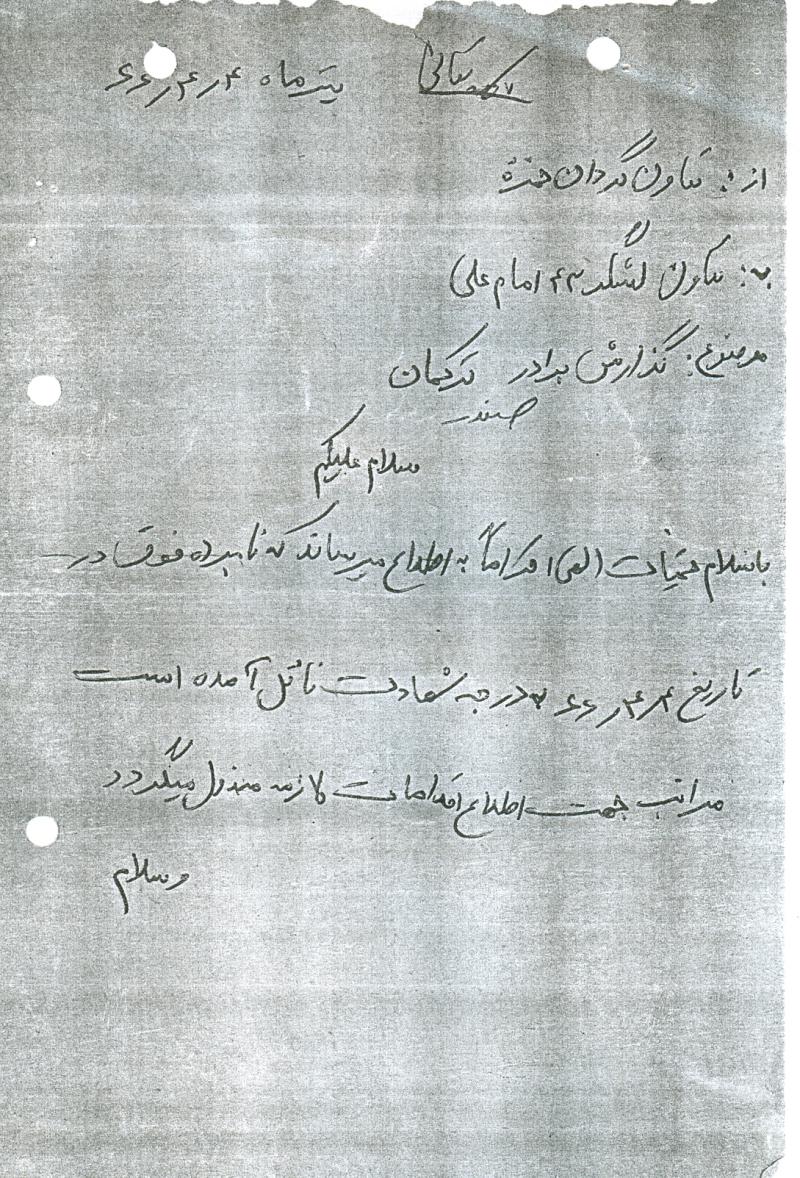 بسمه تعالی تیر ماه ۶۶٫۴٫۴
از: تعاون گردان حمزه
به: تعاون لشگر ۴۳ امام علی
موضوع: گذارش برادر ترکمان
صفدر
سلام علیکم
باسلام تحیات (الهی) احتراماً به اطلاع میرساند که نامبرده فوق در
تاریخ ۶۶٫۴٫۴ به درجه شهادت نائل آمده است
مراتب جهت اطلاع اقدامات لازمه مبذول میگردد
وسلام